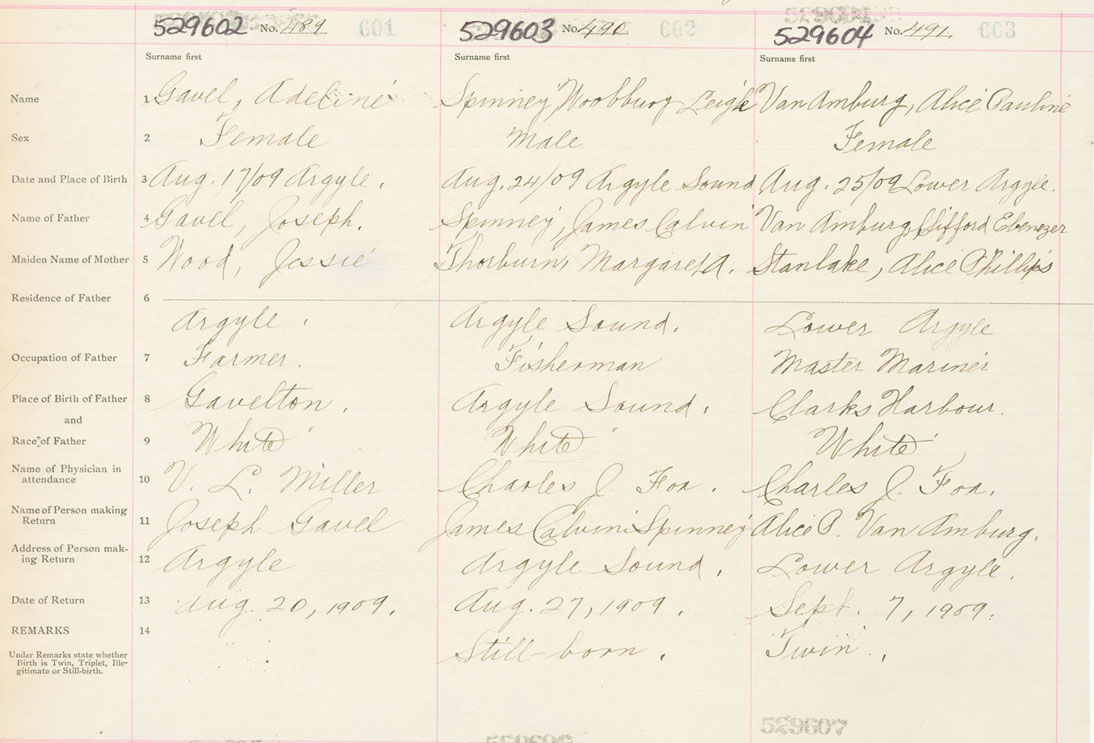 529602 No. 489 601 529603 No. 490 602 529604 No. 491 603
Surname first Surname first Surname first
Name 1 Gavel, Adeline Spinney, Woobbury Leigh Van Amburg, Alice Pauline
Sex 2 Female Male Female
Date and Place of Birth 3 Aug. 17/09 Argyle. Aug. 24/09 Argyle Sound Aug. 25/09 Lower Argyle.
Name of Father 4 Gavel, Joseph. Spinney, James Calvin Van Amburg, Clifford Ebenezer
Maiden Name of Mother 5 Wood, Jessie Thorburn, Margaret A. Stanlake, Alice Phillips
Residence of Father 6
Argyle. Argyle Sound. Lower Argyle
Occupation of Father 7 Farmer. Fisherman Master Mariner
Place of Birth of Father 8 Gavelton. Argyle Sound. Clarks Harbour.
and
Race of Father 9 White White White
Name of Physician in
attendance 10 V. L. Miller Charles J. Fox. Charles J. Fox.
Name of Person making
Return 11 Joseph Gavel James Calvin Spinney Alice P. Van Amburg.
Address of Person mak-
ing Return 12 Argyle Argyle Sound. Lower Argyle.
Date of Return 13 Aug. 20, 1909. Aug. 27, 1909. Sept. 7, 1909.
REMARKS 14
Under Remarks state whether
Birth is Twin, Triplet, Ille-
gitimate or Still-birth.
Still-born. Twin.
529607